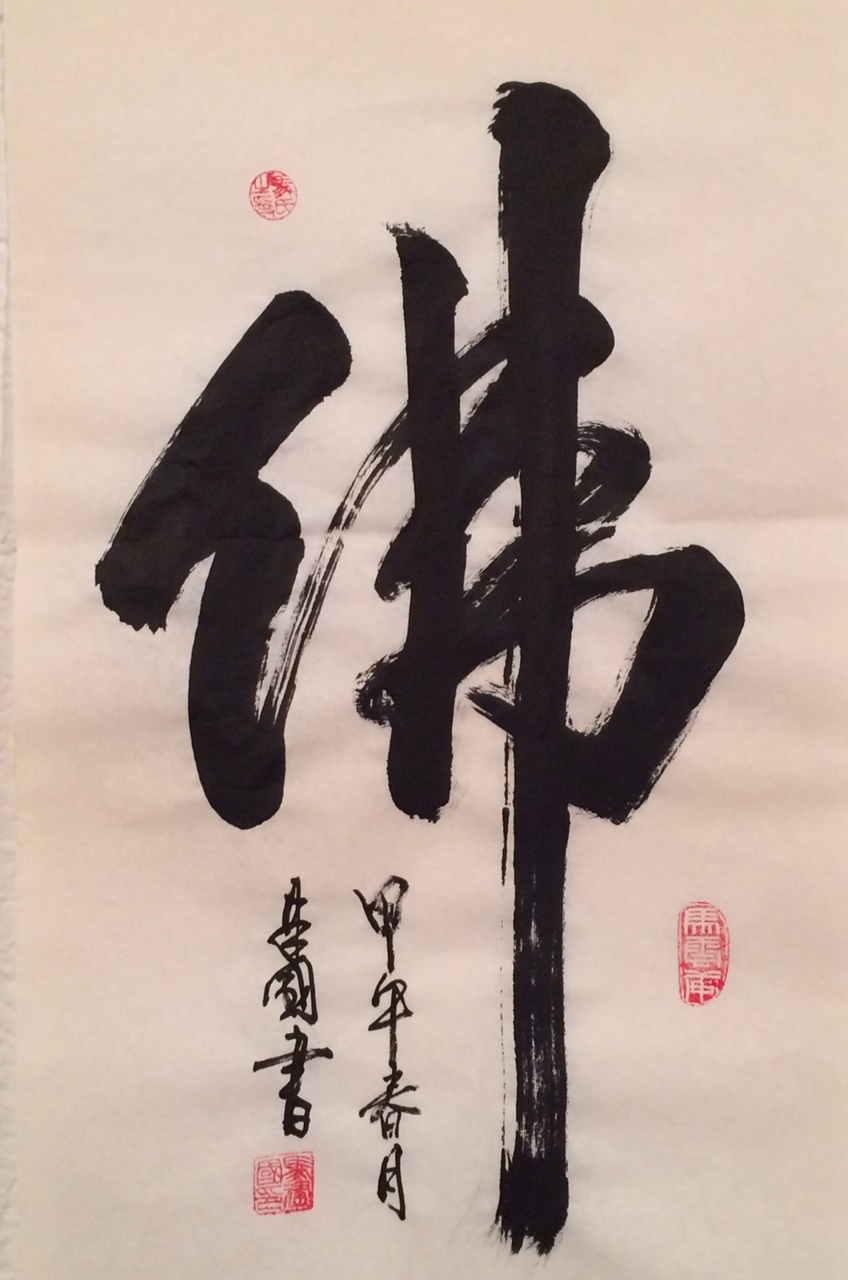 佛
甲午春月
國書